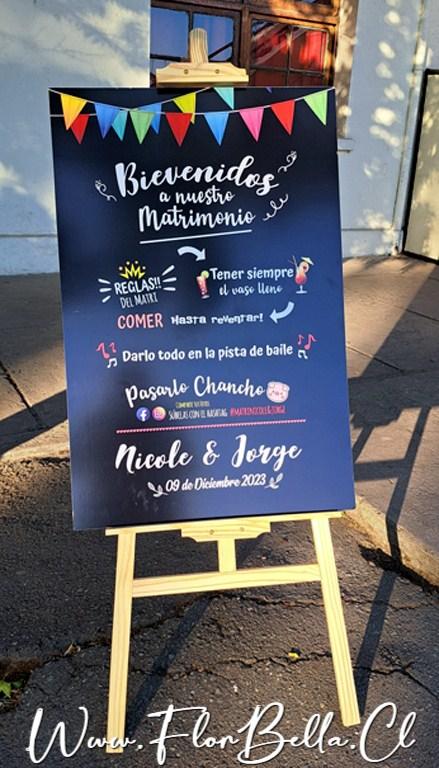 Bienvenidos
a nuestro
Matrimonio
REGLAS!!
DEL MATRI
Tener siempre
el vaso lleno
COMER Hasta reventar!
Darlo todo en la pista de baile
Pasarlo Chancho
SÚBELAS CON EL HASHTAG #MATRINICOLE&JORGE
Nicole & Jorge
09 de Diciembre 2023
Www.FlorBella.Cl